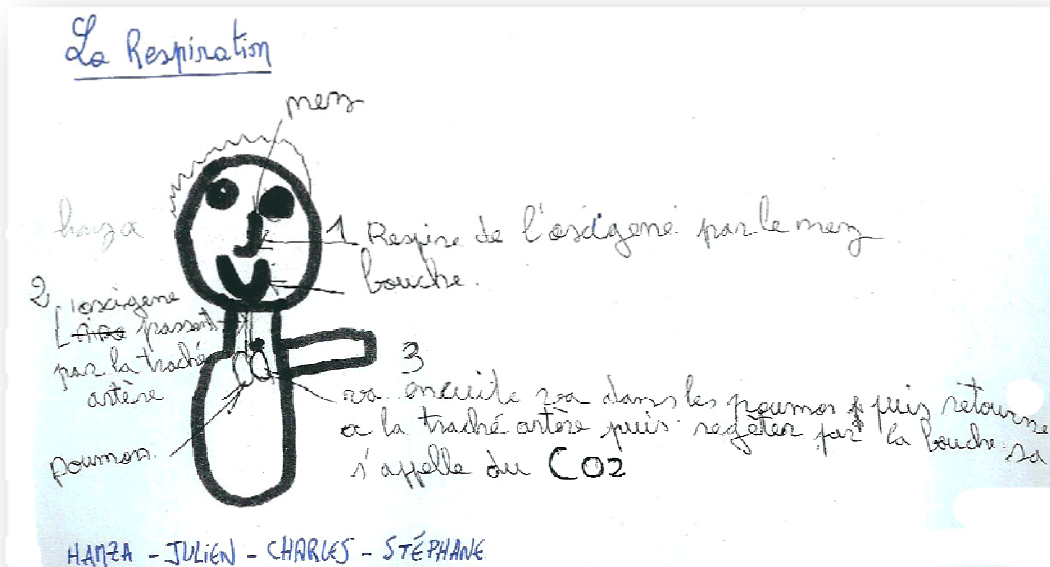 La Respiration
nez
hamza
1 Respire de l'oxcigené par le nez
bouche.
2 l'oxcigene
passent
par la traché
artère
3
va encuite va dans les poumos puis retourne
a la traché artère puis regêter par la bouche sa
s'appelle du CO2
poumon.
HAMZA - JULIEN - CHARLES - STÉPHANE